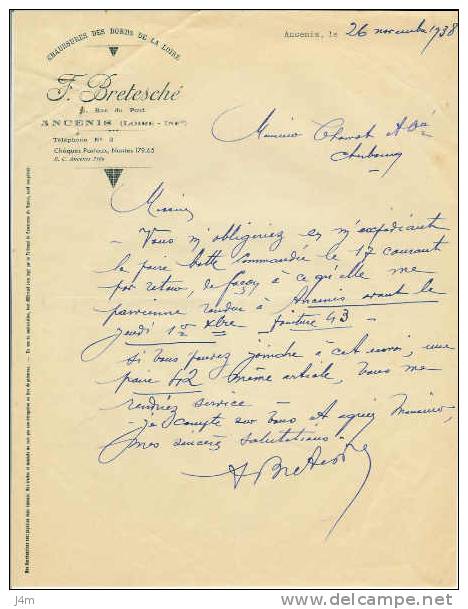 CHAUSSURES DES BORDS DE LA LOIRE
F. Bretesché
Rue du Pont
ANCENIS (LOIRE-INFre)
Téléphone No 3
Chèques Postaux, Nantes 179.65
R. C. Ancenis
Ancenis, le 26 novembre 1938
Cherbourg
Messieurs
- Vous m'obligeriez en m'expédiant
la paire botte commandée le 17 courant
par retour, de façon à ce qu'elle me
parvienne rendue à Ancenis avant le
jeudi 1er Xbre pointure 43 -
si vous pouvez joindre à cet envoi, une
paire 42 même article, vous me
rendriez service -
- je compte sur vous et agréez Messieurs,
mes sincères salutations.
Bretesché
j4m
http://j4m.delcampe.net